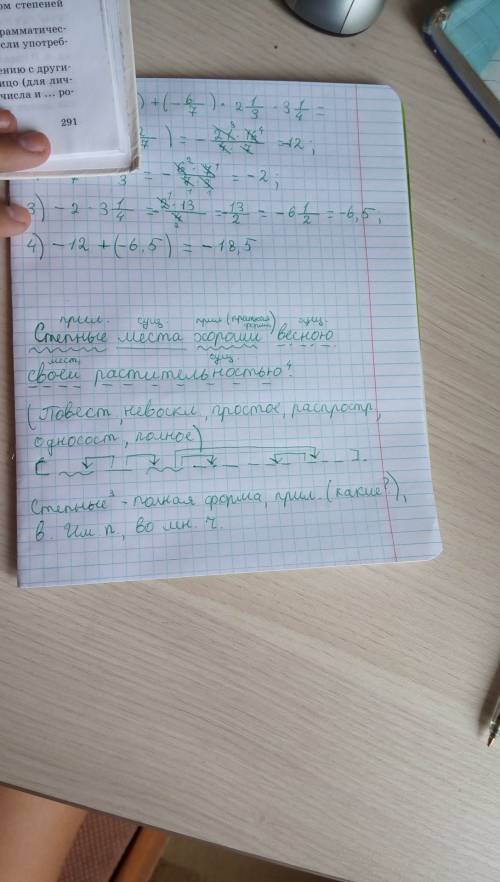 ом степеней
рамматичес-
если употреб-
ению с други-
ицо (для лич-
числа и ... ро-
291
) + (- 6/7) · 2 1/3 · 3 1/4 =
) = - = -12;
= - = -2;
3) -2 · 3 1/4 = - 2 · 13 / 4 = - 13/2 = -6 1/2 = -6,5;
4) -12 + (-6,5) = -18,5
прил. сущ. прил (краткая форма) сущ.
Степные места хороши весною
мест. сущ.
своей растительностью⁴.
(Повест., невоскл., простое, распростр,
односост., полное)
[ ].
Степные³ - полная форма, прил. (какие?),
в Им. п., во мн. ч.